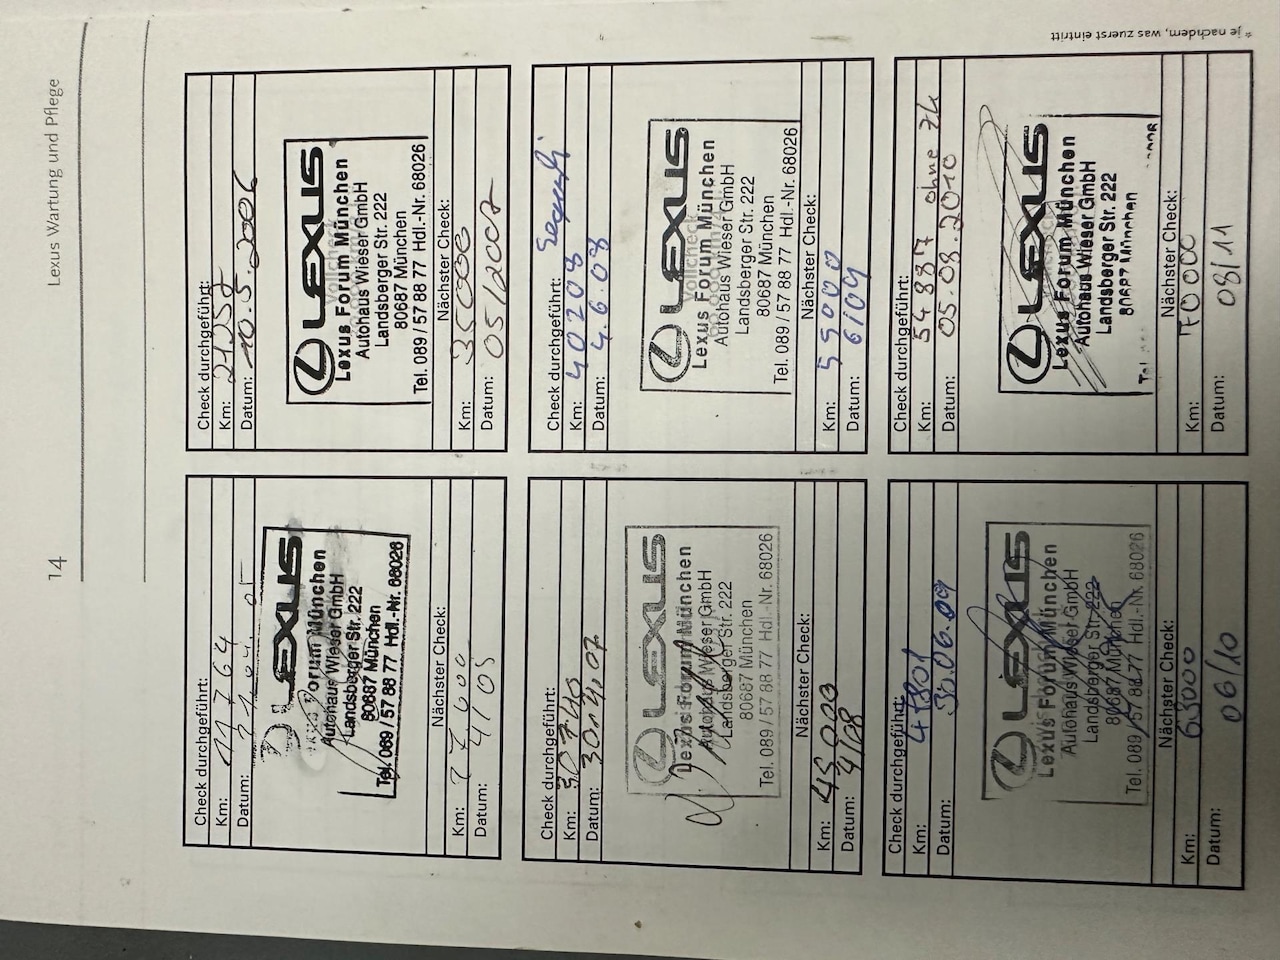 14
Lexus Wartung und Pflege
Check durchgeführt:
Km: 11764
Datum:
LEXUS
Forum München
Autohaus Wieser GmbH
Landsberger Str. 222
80687 München
Tel. 089 / 57 88 77 Hdl.-Nr. 68026
Nächster Check:
Km:
Datum: 4/05
Check durchgeführt:
Km:
Datum: 10.5.2006
LEXUS
Lexus Forum München
Autohaus Wieser GmbH
Landsberger Str. 222
80687 München
Tel. 089 / 57 88 77 Hdl.-Nr. 68026
Nächster Check:
Km: 35000
Datum: 05/2007
Check durchgeführt:
Km: 30740
Datum: 30.4.07
LEXUS
Lexus Forum München
Autohaus Wieser GmbH
Landsberger Str. 222
80687 München
Tel. 089 / 57 88 77 Hdl.-Nr. 68026
Nächster Check:
Km: 45000
Datum: 4/08
Check durchgeführt:
Km: 40208
Datum: 4.6.08
LEXUS
Lexus Forum München
Autohaus Wieser GmbH
Landsberger Str. 222
80687 München
Tel. 089 / 57 88 77 Hdl.-Nr. 68026
Nächster Check:
Km: 55000
Datum: 6/09
Check durchgeführt:
Km: 47801
Datum: 30.06.09
LEXUS
Lexus Forum München
Autohaus Wieser GmbH
Landsberger Str. 222
80687 München
Tel. 089 / 57 88 77 Hdl.-Nr. 68026
Nächster Check:
Km: 63000
Datum: 06/10
Check durchgeführt:
Km: 54887 ohne ZK
Datum: 05.08.2010
LEXUS
Lexus Forum München
Autohaus Wieser GmbH
Landsberger Str. 222
80687 München
Tel.
Nächster Check:
Km: 70000
Datum: 08/11
* je nachdem, was zuerst eintritt